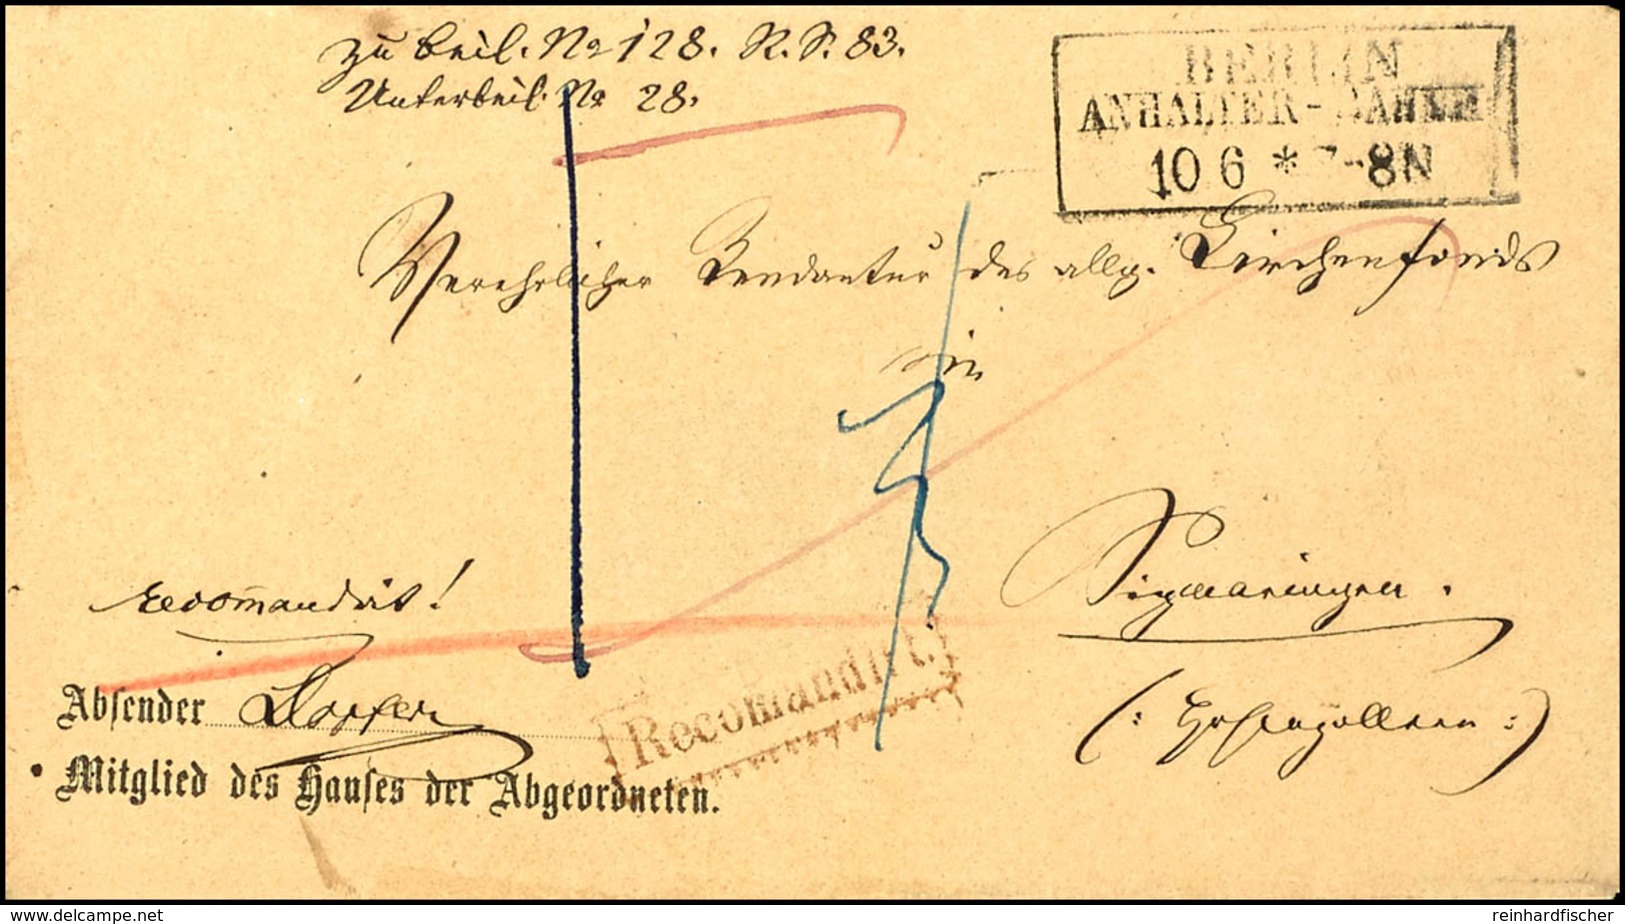 zu Beil. No 128. R. P. 83.
Unterbeil. No 28.
BERLIN
ANHALTER-BAHNH
10 6 * 7-8N
Verehrlicher Rendantur des allg. Kirchenfonds
in
Sigmaringen.
recomandirt!
(: Hohenzollern :)
Recomandirt.
Absender
Mitglied des Hauses der Abgeordneten.
www.delcampe.net
reinhardfischer